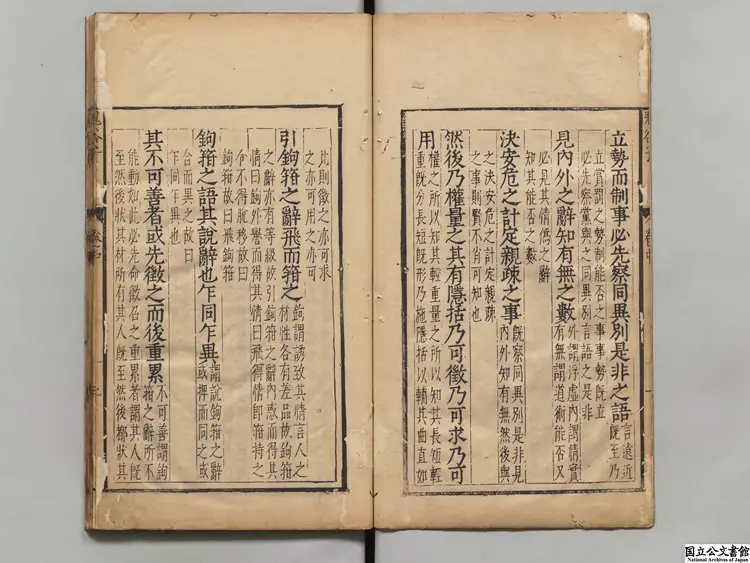 立勢而制事必先察同異別是非之語
言遠近
既至乃
立賞罰之勢制能否之事事勢既立
必先察黨與之同異別言語之是非
見內外之辭知有無之數
外謂浮虛內謂情實
有無謂道術能否又
必見其情偽之辭
知其能否之數
決安危之計定親疎之事
既察同異別是非見
內外知有無然後與
之決安危之計定親疎
之事則賢不肖可知也
然後乃權量之其有隱括乃可徵乃可求乃可
用
權之所以知其輕重量之所以知其長短輕
重既分長短既形乃施隱括以輔其曲直如
卷中
比則徵之亦可求
之亦可用之亦可
引鉤箝之辭飛而箝之
鉤謂誘致其情言人之
材性各有差品故鉤箝
之辭亦有等級故引鉤箝之辭內惑而得其
情曰鉤外譽而得其情曰飛得情即箝持之
令不得脫移故曰
鉤箝故曰飛箝
鉤箝之語其說辭也乍同乍異
謂說鉤箝之辭
或捭而同之或
合而異之故曰
乍同乍異也
其不可善者或先徵之而後重累
不可善謂鉤
箝之辭所不
能動如此必先命徵召之重累者謂其人既
至然後狀其材所有其人既至然後都狀其
鬼谷子
卷中
国立公文書館
National Archives of Japan